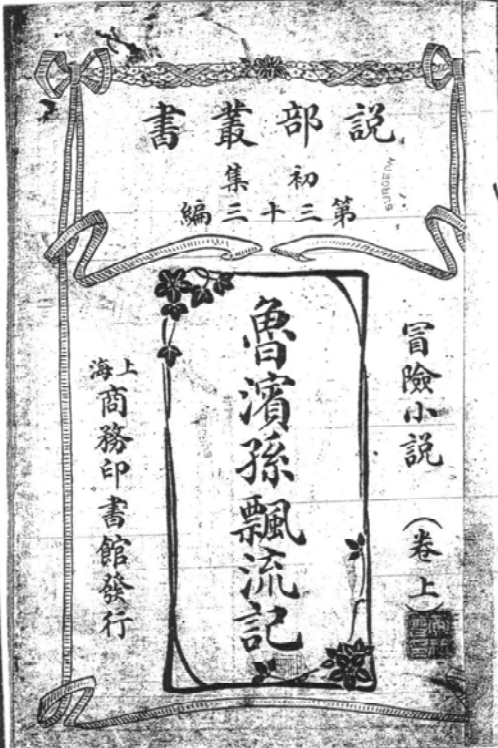 説部叢書
初集
第三十三編
冒險小説 (卷上)
魯濱孫飄流記
上海商務印書館發行